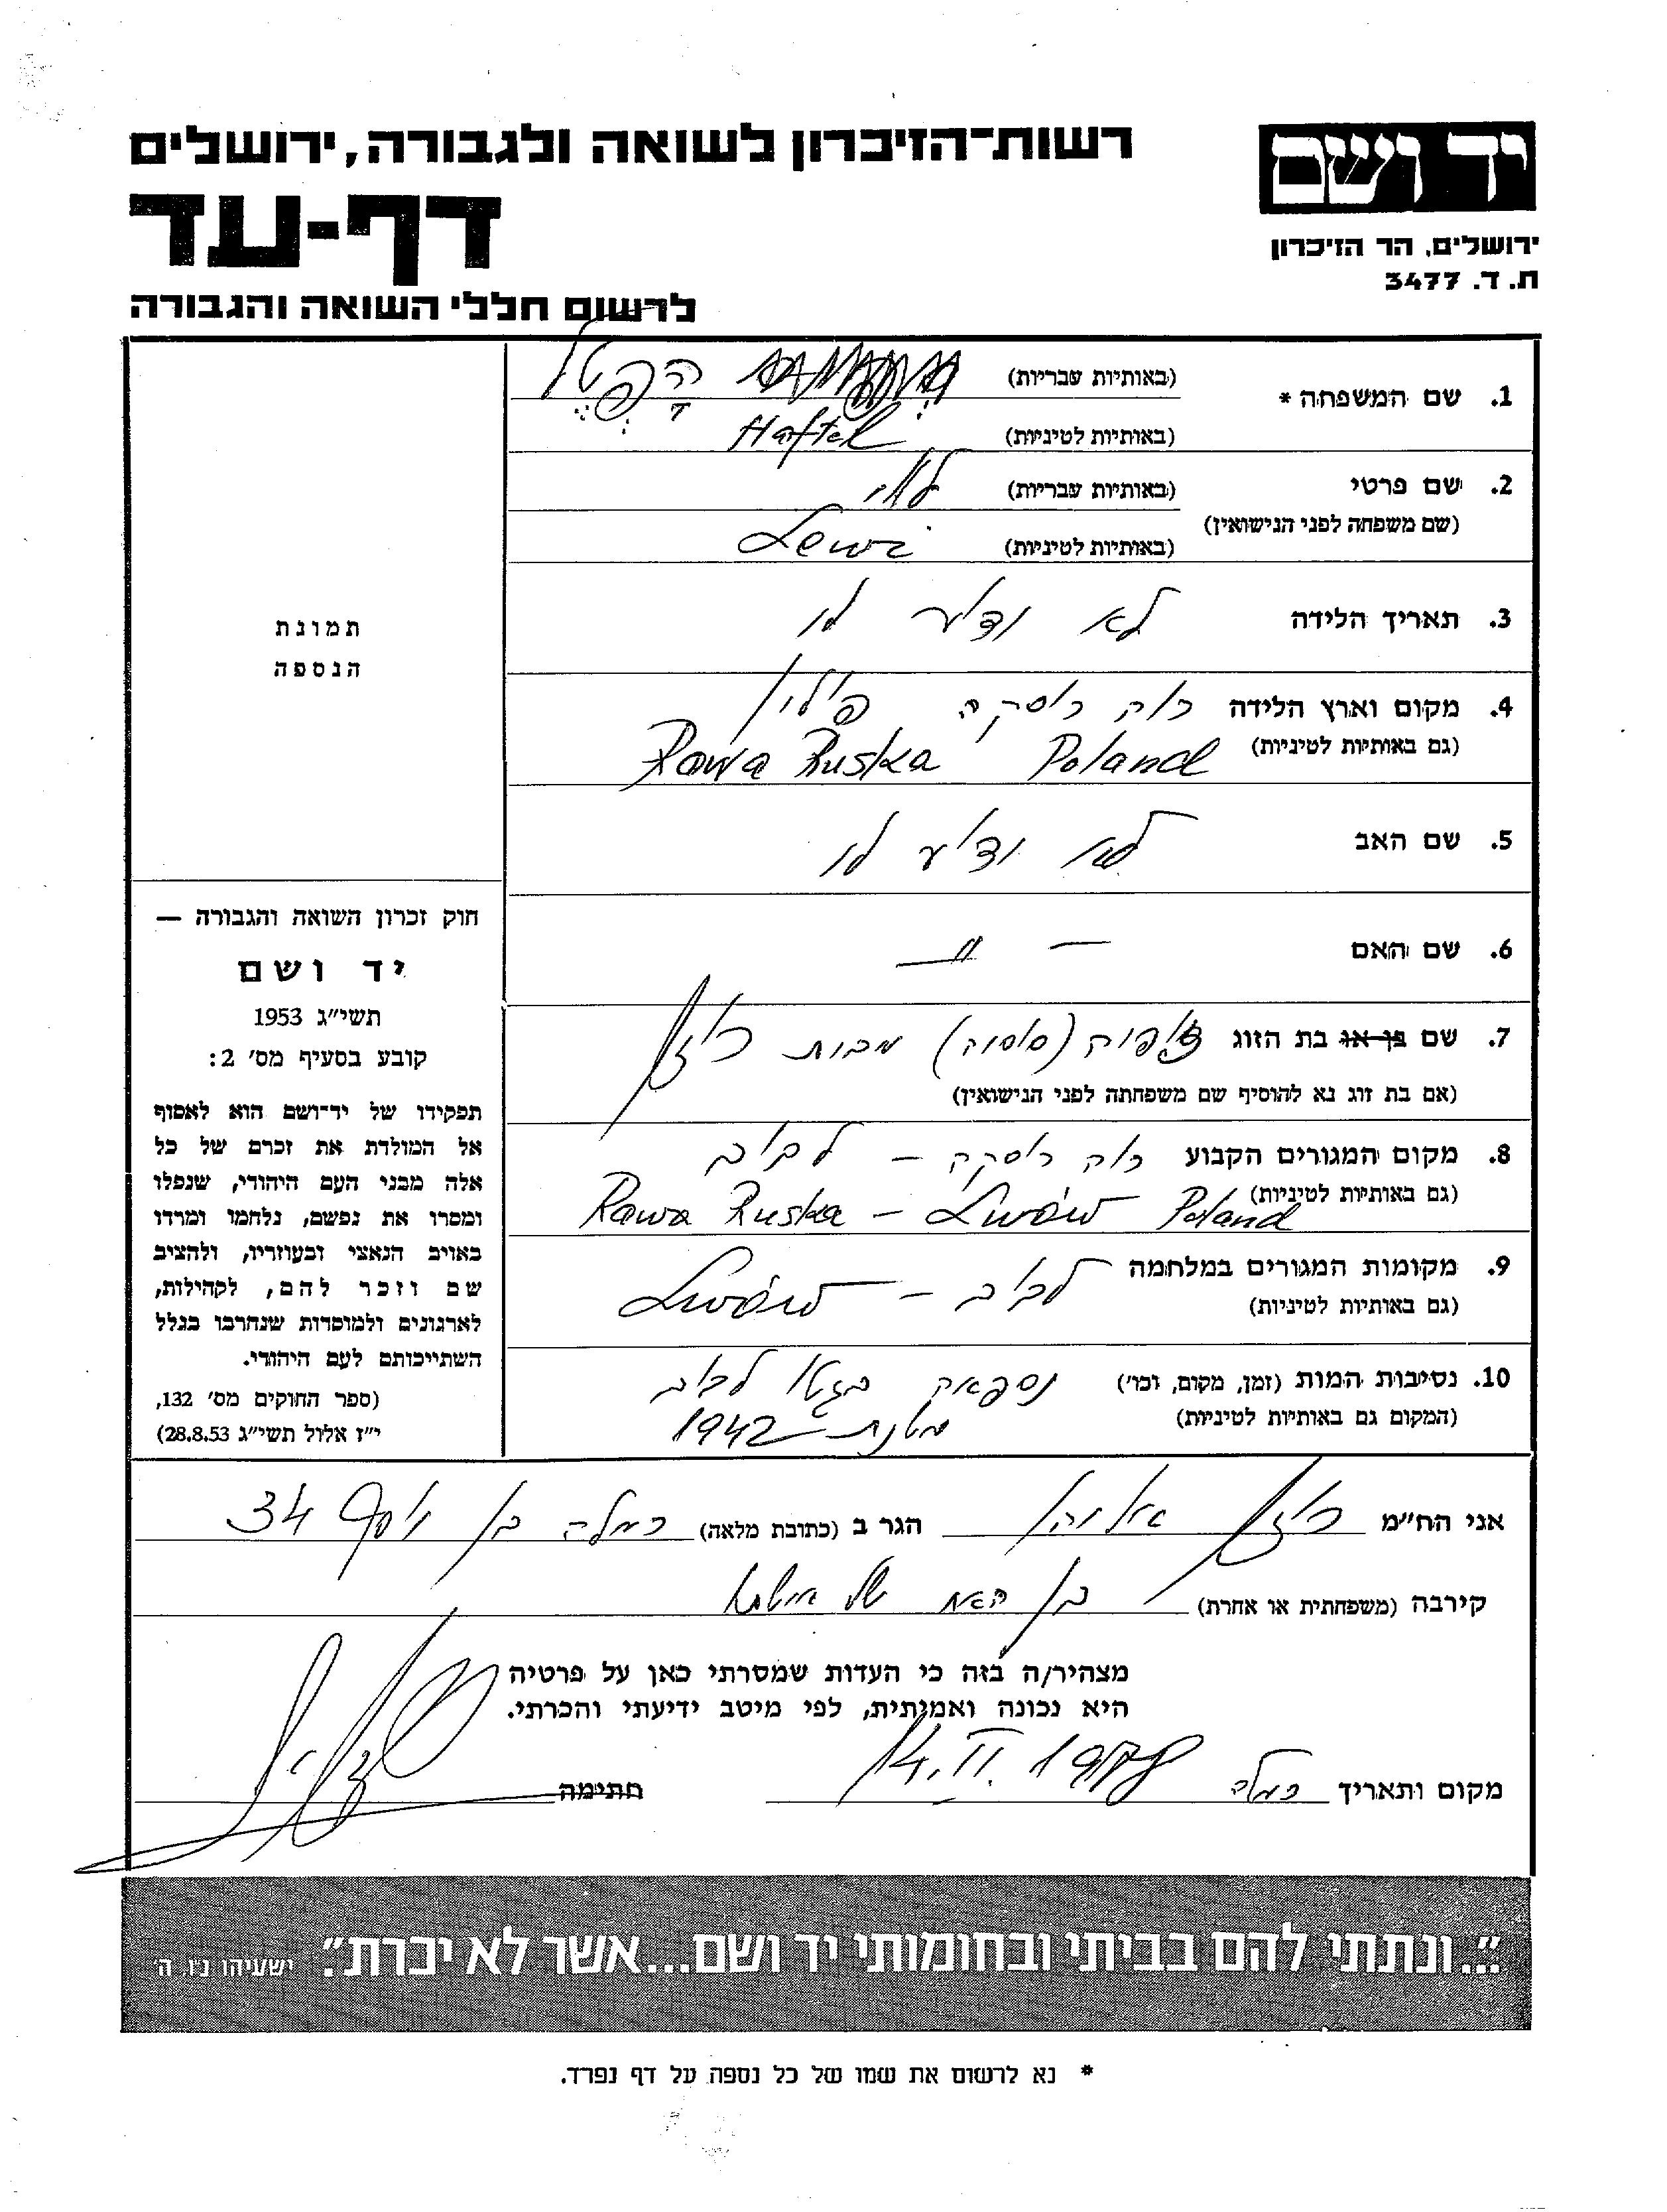 יד ושם
ירושלים, הר הזיכרון
ת. ד. 3477
רשות-הזיכרון לשואה ולגבורה, ירושלים
דף-עד
לרשום חללי השואה והגבורה
1. שם המשפחה * (באותיות עבריות) הפטל
(באותיות לטיניות) Haftel
2. שם פרטי (באותיות עבריות) לוי
(שם משפחה לפני הנישואין) (באותיות לטיניות) Lewi
3. תאריך הלידה לא ידוע לי
4. מקום וארץ הלידה רוה רוסקה פולין
(גם באותיות לטיניות) Rawa Ruska Poland
5. שם האב לא ידוע לי
6. שם האם — " —
7. שם בן או בת הזוג (סוסיה) מבית
(אם בת זוג נא להוסיף שם משפחתה לפני הנישואין)
8. מקום המגורים הקבוע רוה רוסקה – לבוב
(גם באותיות לטיניות) Rawa Ruska – Lwów Poland
9. מקומות המגורים במלחמה לבוב – Lwów
(גם באותיות לטיניות)
10. נסיבות המות (זמן, מקום, וכו') בגטו לבוב
(המקום גם באותיות לטיניות) בשנת 1942
תמונת
הנספה
חוק זכרון השואה והגבורה —
יד ושם
תשי"ג 1953
קובע בסעיף מס' 2:
תפקידו של יד-ושם הוא לאסוף
אל המולדת את זכרם של כל
אלה מבני העם היהודי, שנפלו
ומסרו את נפשם, נלחמו ומרדו
באויב הנאצי ובעוזריו, ולהציב
שם וזכר להם, לקהילות,
לארגונים ולמוסדות שנחרבו בגלל
השתייכותם לעם היהודי.
(ספר החוקים מס' 132,
י"ז אלול תשי"ג 28.8.53)
אני הח"מ הגר ב (כתובת מלאה) רמלה בן יוסף 34
קירבה (משפחתית או אחרת) בן האח של אישתו
מצהיר/ה בזה כי העדות שמסרתי כאן על פרטיה
היא נכונה ואמיתית, לפי מיטב ידיעתי והכרתי.
מקום ותאריך רמלה 14.II.1978 חתימה
"...ונתתי להם בביתי ובחומותי יד ושם...אשר לא יכרת." ישעיהו נ"ו, ה'
* נא לרשום את שמו של כל נספה על דף נפרד.